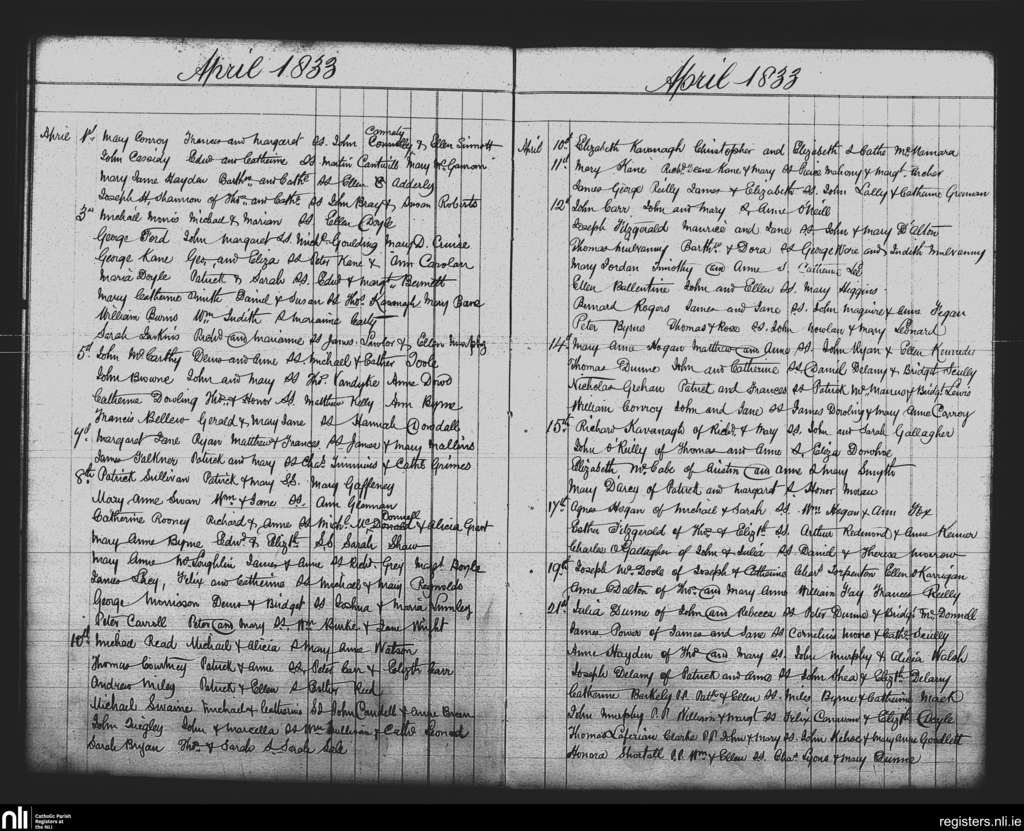 April 1833
April 1st Mary Conroy Francis and Margaret Ss. John Connolly & Ellen Sinnott
Connely
John Cassidy Edwd and Catherine Ss Martin Cantwill Mary McGannon
Mary Jane Hayden Barthw and Cathe Ss Ellen Adderly
Joseph H. Shannon of Thos and Cathe Ss John Bray & Susan Roberts
3rd Michael Minis Michael & Marian Ss. Ellen Doyle
George Ford John Margaret Ss. Michl Goulding Mary D. Cruise
George Kane Geo. and Eliza Ss Peter Kane & Ann Carolan
Maria Doyle Patrick & Sarah Ss. Edwd & Margt Bennett
Mary Catherine Smith Daniel & Susan Ss Thos Kavanagh Mary
William Burns Wm Judith S Marianne Carty
Sarah Richd and Marianne Ss James & Ellen Murphy
5th John McCarthy Denis and Anne Ss Michael & Esther Toole
John Browne John and Mary Ss Thos Vandyke Anne
Catherine Dowling Thos & Honor Ss Matthew Kelly Ann Byrne
Francis Bellew Gerald & Mary Jane Ss Hannah Dowdall
7th Margaret Jane Ryan Matthew & Frances Ss James & Mary Mallins
James Falkner Patrick and Mary Ss Chas Timmins & Cathe Grimes
8th Patrick Sullivan Patrick & Mary Ss. Mary Gaffeney
Mary Anne Swan Wm & Jane Ss. Ann Glennan
Catherine Rooney Richard & Anne Ss Michl McDonald & Alicia Grant
Connell
Mary Anne Byrne Edwd & Elizth Ss Sarah Shaw
Mary Anne McLoghlin James & Anne Ss Robt Grey Margt Boyle
James Felix and Catherine Ss Michael & Mary Reynolds
George Morrisson Denis & Bridget Ss Joshua & Maria
Peter Carroll Peter and Mary Ss Wm Burke & Jane Wright
10th Michael Read Michael & Alicia S Mary Anne Watson
Thomas Courtney Patrick & Anne Ss Peter Carr & Elizth Carr
Andrew Miley Patrick & Ellen S Esther Reid
Michael Swaine Michael & Catherine Ss John & Anne Brien
John Quigley John & Marcella Ss Wm Sullivan & Cathe Leonard
Sarah Bryan Thos & Sarah S Sarah
April 1833
April 10th Elizabeth Kavanagh Christopher and Elizabeth S Cathe McNamara
11th Mary Kane Mary Ss Pierce Mahony & Margt Archer
James George Reilly James & Elizabeth Ss. John Lally & Catharine Grennan
12th John Carr John and Mary S. Anne O'Neill
Joseph Fitzgerald Maurice and Jane Ss John & Mary Dalton
Thomas Mulvanny Barthw & Dora Ss George Wore and Judith Mulvanny
Mary Jordan Timothy and Anne S. Catherine Lee
Ellen Ballentine John and Ellen Ss. Mary Higgins
Bernard Rogers James and Jane Ss. John Maguire & Anne Fegan
Peter Byrne Thomas & Rose Ss. John Nowlan & Mary Leonard
14th Mary Anna Hogan Matthew and Anne Ss. John Ryan & Ellen Kennedy
Thomas Dunne John and Catherine Ss Daniel Delany & Bridget Scully
Nicholas Grehan Patrick and Frances Ss Patrick & Bridgt Lewis
William Conroy John and Jane Ss James Dowling & Mary Anne Conroy
15th Richard Kavanagh of Richd & Mary Ss. John and Sarah Gallagher
John O'Reilly of Thomas and Anne S Eliza Donohoe
Elizabeth McCabe of Austin and Anne S Mary Smyth
Mary Darcy of Patrick and Margaret S. Honor Moran
17th Agnes Hogan of Michael & Sarah Ss. Wm Hogan & Ann Fox
Esther Fitzgerald of Thos & Elizth Ss. Arthur Redmond & Anne
Charles O'Gallagher of John & Julia Ss. Daniel & Theresa Morrow
19th Joseph McDoole of Joseph & Catherine Ellen Karrigan
Anne Dalton of Thos and Mary Anne William Fay Frances Reilly
21st Julia Dunne of John and Rebecca Ss Peter Dunne & Bridgt McDonnell
James Power of James and Jane Ss Cornelius Moore & Cathe Scully
Anne Hayden of Thos and Mary Ss. John Murphy & Alicia Walsh
Joseph Delany of Patrick and Anne Ss John Shea & Elizth Delany
Catharine Berkely P.P. Patk & Ellen Ss. Miles Byrne & Catherine Mack
John Murphy P.P. William & Margt Ss Felix & Elizth Doyle
Thomas Clarke P.P. John & Mary Ss. John Kehoe & Mary Anne Goodlett
Honora Shortall P.P. Wm & Ellen Ss. Chas Lyons & Mary Dunne
nli Catholic Parish Registers at the NLI
registers.nli.ie